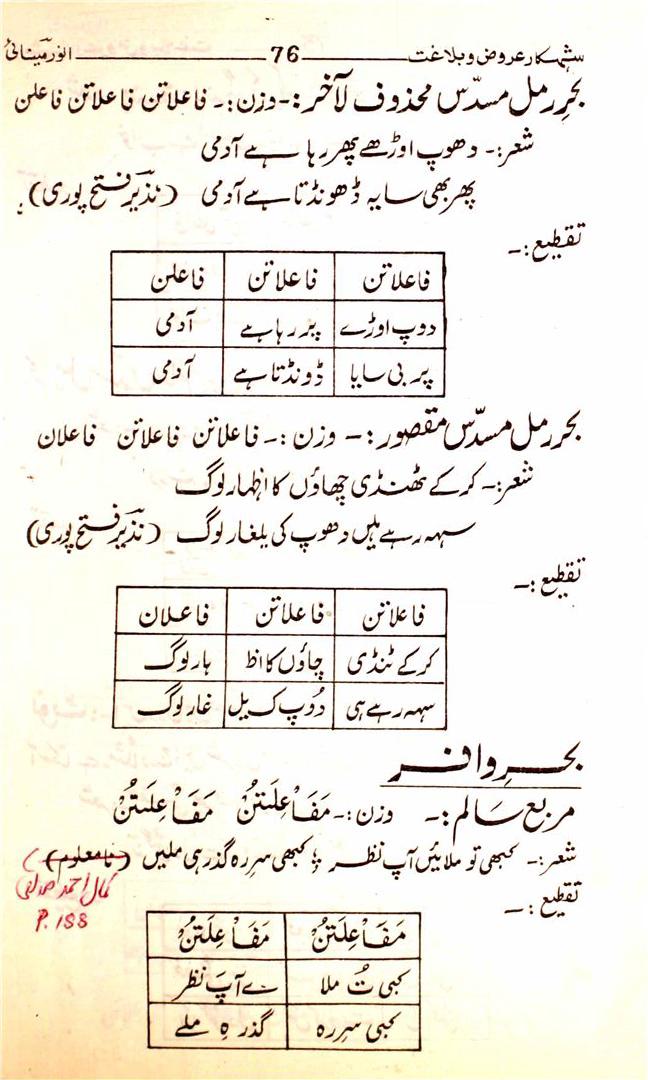 شہکار عروض و بلاغت ـــــ 76 ـــــ انور مینائی
بحرِ رمل مسدّس محذوف لآخر:۔ وزن:۔ فاعلاتن فاعلاتن فاعلن
شعر:۔ دھوپ اوڑھے پھر رہا ہے آدمی
پھر بھی سایہ ڈھونڈتا ہے آدمی (نذیر فتح پوری)
تقطیع:۔
فاعلاتن فاعلاتن فاعلن
دوپ اوڑے پر رہا ہے آدمی
پر بی سایا ڈونڈتا ہے آدمی
بحر رمل مسدّس مقصور:۔ وزن:۔ فاعلاتن فاعلاتن فاعلان
شعر:۔ کر کے ٹھنڈی چھاؤں کا اظہار لوگ
سہہ رہے ہیں دھوپ کی یلغار لوگ (نذیر فتح پوری)
تقطیع:۔
فاعلاتن فاعلاتن فاعلان
کر کے ٹنڈی چاؤں کا اظ ہار لوگ
سہہ رہے ہی دُوپ ک یل غار لوگ
بحرِ وافر
مربع سالم:۔ وزن:۔ مَفَاْعِلَتُنْ مَفَاْعِلَتُنْ
شعر:۔ کبھی تو ملائیں آپ نظر ؛ کبھی سرِ رہ گذر ہی ملیں (نامعلوم)
کمال احمد صدیقی
P. 188
تقطیع:۔
مَفَاْعِلَتُنْ مَفَاْعِلَتُنْ
کبی تُ ملا ءے آپَ نظر
کبی سرِ رہ گذر ہِ ملے